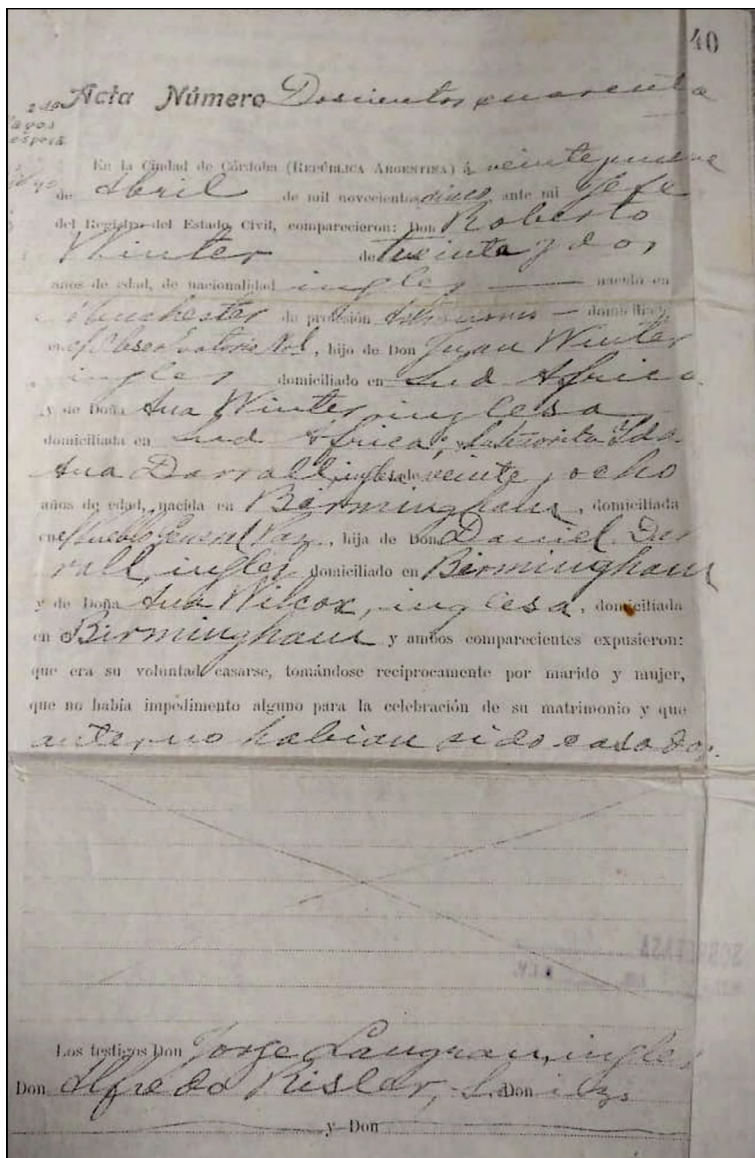 40
Acta Número Doscientos cuarenta
En la Ciudad de Córdoba (REPÚBLICA ARGENTINA) á veintinueve
de Abril de mil novecientos cinco, ante mi Jefe
del Registro del Estado Civil, comparecieron: Don Roberto
Winter de treinta y dos
años de edad, de nacionalidad ingles nacido en
Manchester de profesión Astronomo domiciliado
en el Observatorio Nal, hijo de Don Juan Winter
ingles domiciliado en Sud Africa
y de Doña Ana Winter, inglesa
domiciliada en Sud Africa; la señorita Ida
Ana Darrall, inglesa de veinte y ocho
años de edad, nacida en Birmingham, domiciliada
en el Pueblo General Paz, hija de Don Daniel Dar
rall, ingles, domiciliado en Birmingham
y de Doña Ana Wilcox, inglesa, domiciliada
en Birmingham y ambos comparecientes expusieron:
que era su voluntad casarse, tomándose reciprocamente por marido y mujer,
que no había impedimento alguno para la celebración de su matrimonio y que
antes no habian sido casados.
Los testigos Don Jorge ingles
Don Alfredo Don
y Don